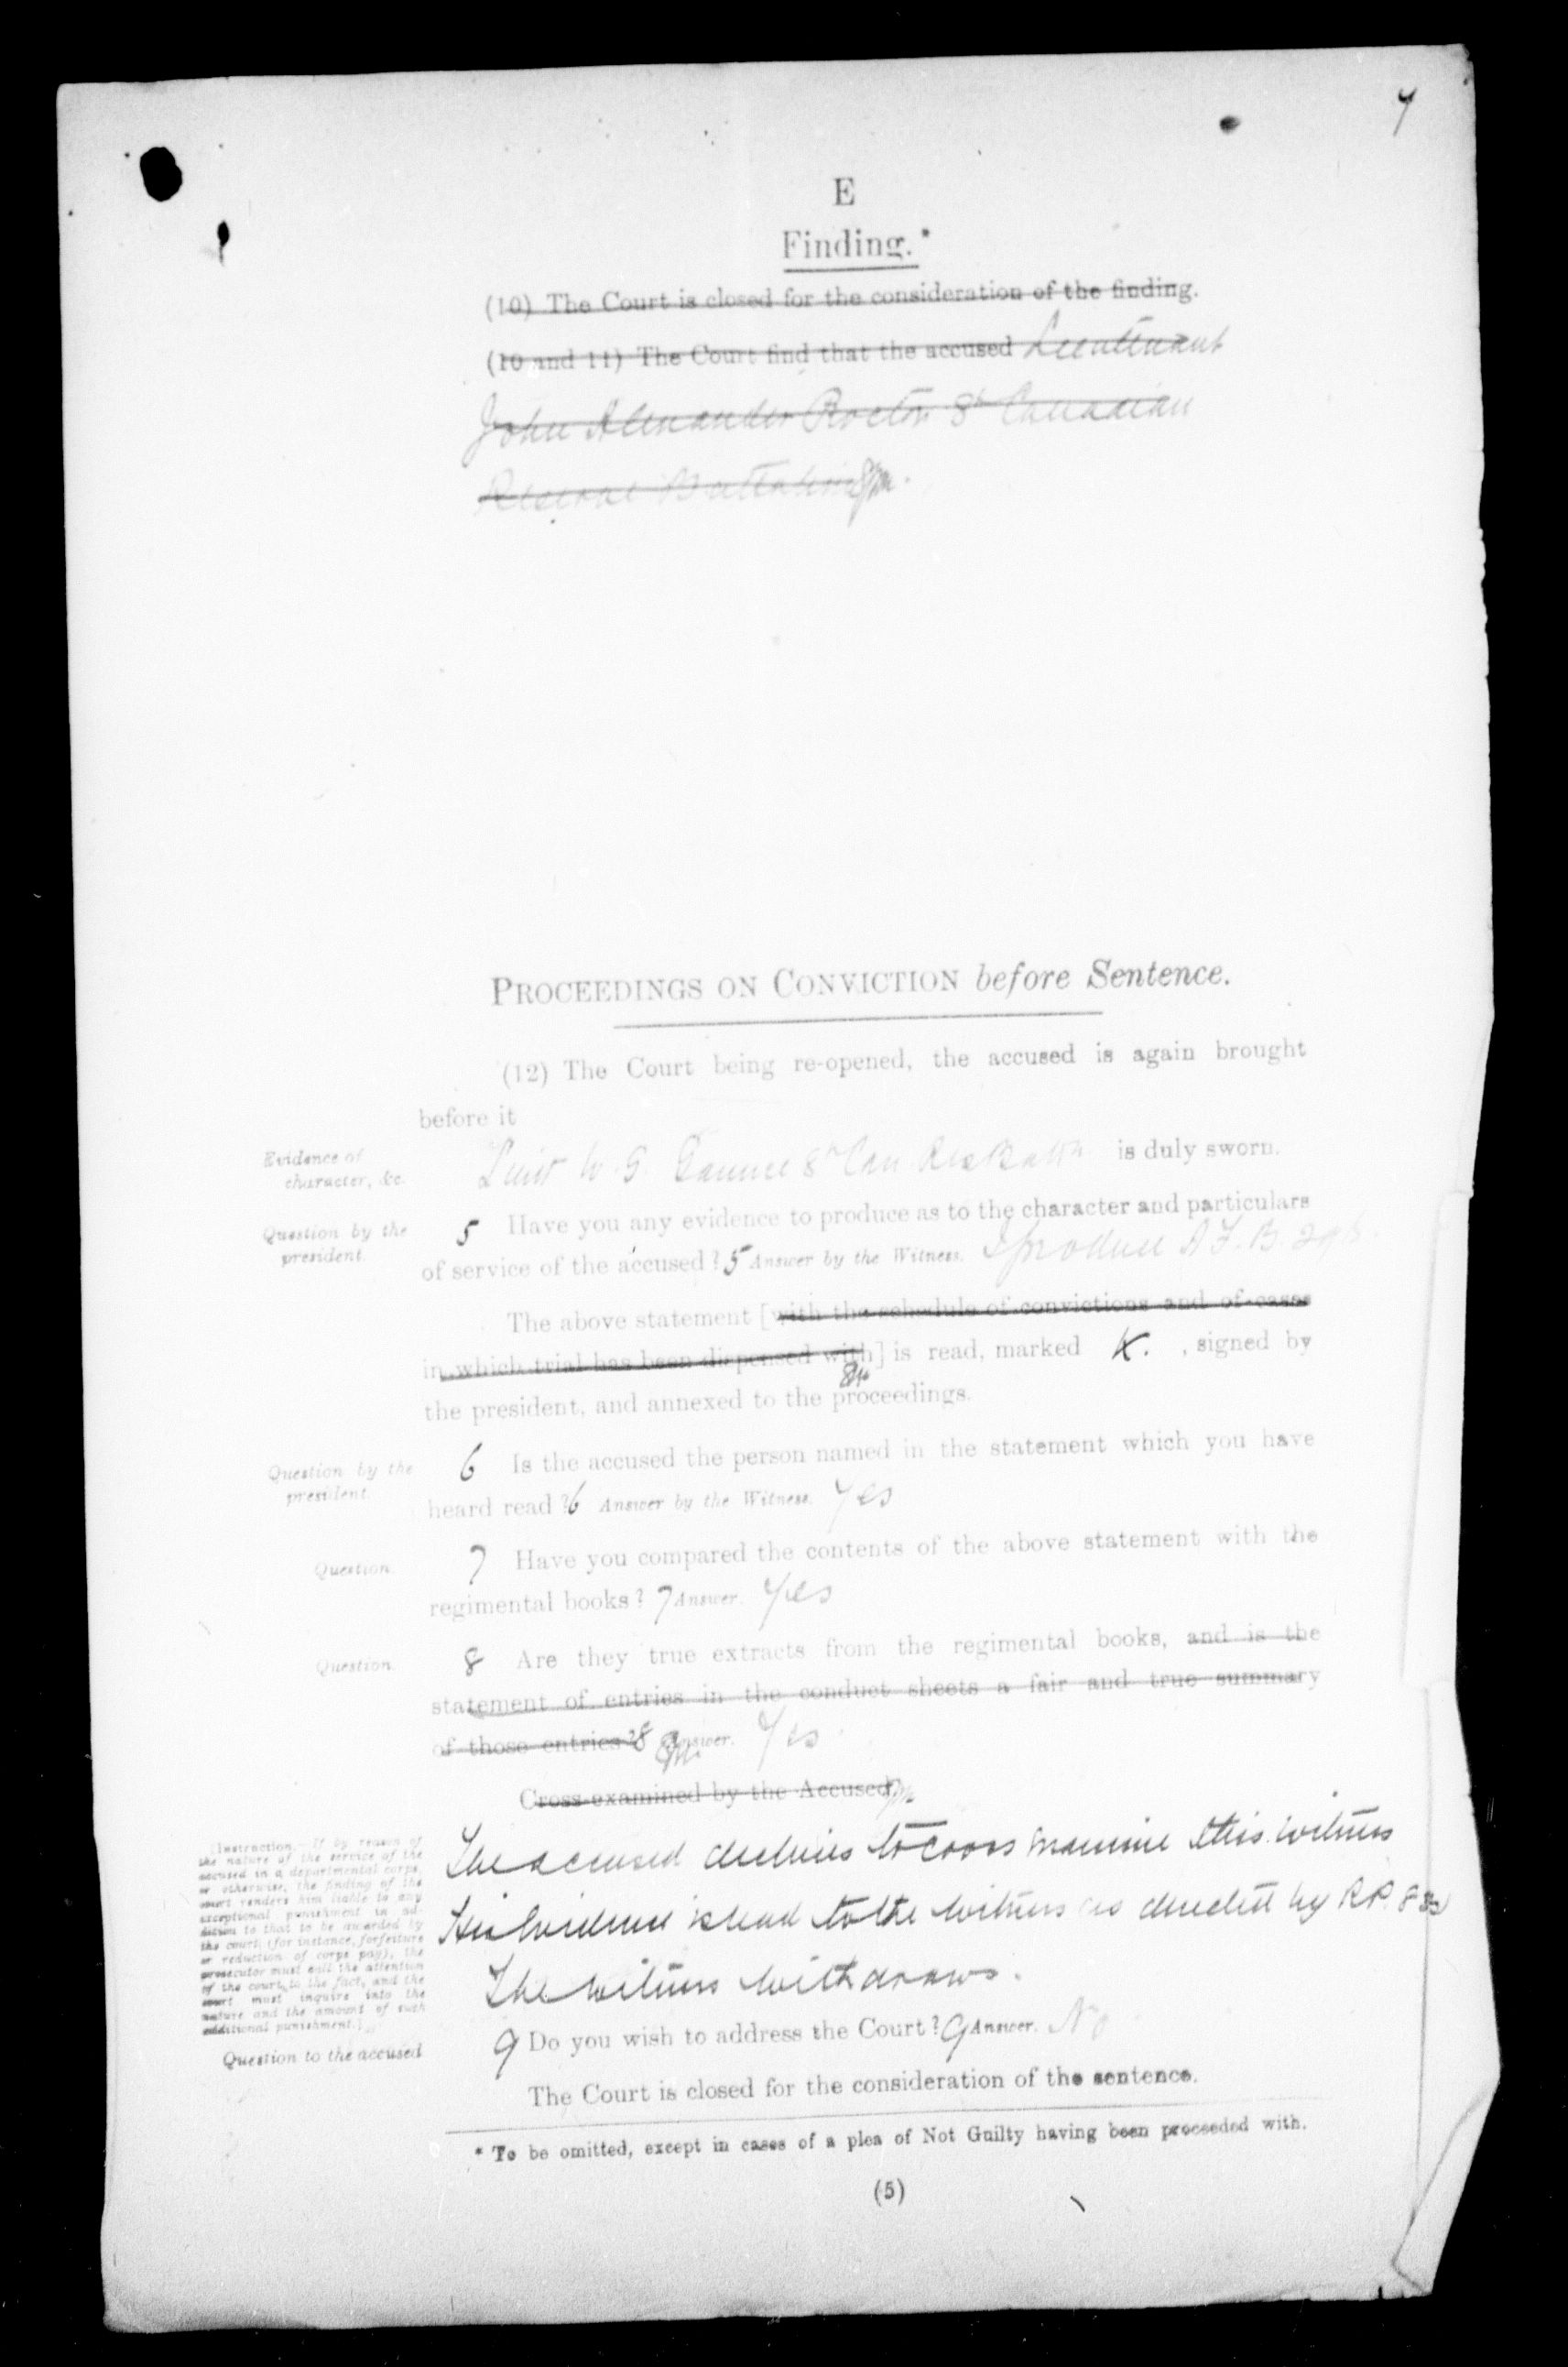 7
E
Finding.*
(10) The Court is closed for the consideration of the finding.
(10 and 11) The Court find that the accused Lieutenant
John Alexander Procter 8th Canadian
Reserve Battalion
PROCEEDINGS ON CONVICTION before Sentence.
(12) The Court being re-opened, the accused is again brought
before it
Evidence of
character, &c.
Lieut W. G. 8th Can Res Battn is duly sworn.
Question by the
president.
5 Have you any evidence to produce as to the character and particulars
of service of the accused? 5 Answer by the Witness. I produce A.F.B 296.
The above statement [with the schedule of convictions and of cases
in which trial has been dispensed with] is read, marked K. , signed by
the president, and annexed to the proceedings.
Question by the
president.
6 Is the accused the person named in the statement which you have
heard read? 6 Answer by the Witness. Yes
Question.
7 Have you compared the contents of the above statement with the
regimental books? 7 Answer. Yes
Question.
8 Are they true extracts from the regimental books, and is the
statement of entries in the conduct sheets a fair and true summary
of those entries? 8 Answer. Yes
Cross-examined by the Accused.
The accused declines to cross examine this witness
His evidence is read to the witness as directed by R.P. 83
The witness withdraws.
[Instruction.—If by reason of
the nature of the service of the
accused in a departmental corps,
or otherwise, the finding of the
court renders him liable to any
exceptional punishment in ad-
dition to that to be awarded by
the court (for instance, forfeiture
or reduction of corps pay), the
prosecutor must call the attention
of the court to the fact, and the
court must inquire into the
nature and the amount of such
additional punishment.]
Question to the accused
9 Do you wish to address the Court? 9 Answer. No
The Court is closed for the consideration of the sentence.
* To be omitted, except in cases of a plea of Not Guilty having been proceeded with.
(5)